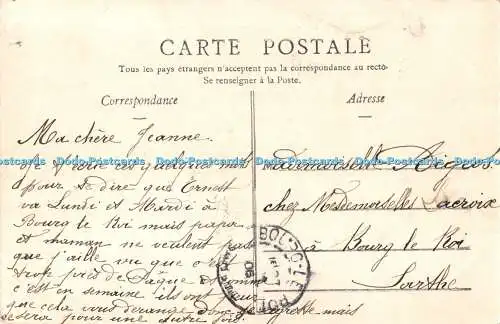 CARTE POSTALE
Tous les pays étrangers n'acceptent pas la correspondance au recto.
Se renseigner à la Poste.
Correspondance
Adresse
Ma chère Jeanne.
Je t'écris ces quelques mots
pour te dire que Ernest
va Lundi et Mardi à
Bourg le Roi mais papa
et maman ne veulent pas
que j'aille vu que
trop près de Pâque et comme
c'est en semaine ils ont peur
que cela vous dérange donc je regrette mais
sera pour une autre fois
Mademoiselle
chez Mesdemoiselles Lacroix
à Bourg le Roi
Sarthe
Dodo-Postcards Dodo-Postcards Dodo-Postcards Dodo-Postcards Dodo-Postcards